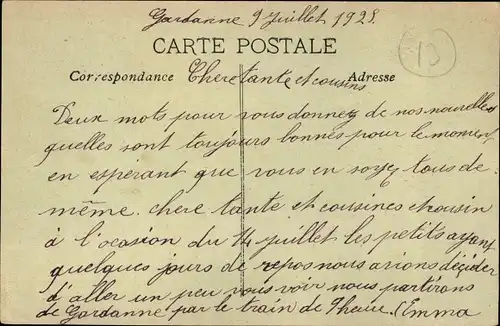 Gardanne 9 Juillet 1928.
CARTE POSTALE
13
Correspondance Chere tante et cousins Adresse
Deux mots pour vous donnez de nos nouvelles
quelles sont toujours bonnes pour le moment
en espérant que vous en soyez tous de
même. chere tante et cousines et cousin
à l'ocasion du 14 juillet les petits ayant
quelques jours de repos nous avions décider
d'aller un peu vous voir nous partirons
de Gardanne par le train de 7 heure. Emma